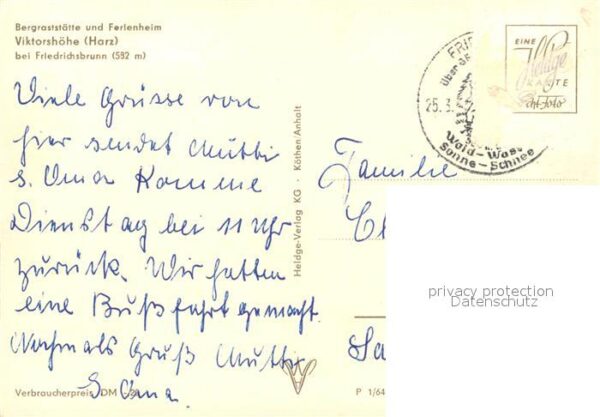 Bergraststätte und Ferienheim
Viktorshöhe (Harz)
bei Friedrichsbrunn (592 m)
Viele Grüsse von
hier sendet Mutti
u. Oma Komme
Dienstag bei 11 Uhr
zurück. Wir hatten
eine Bußfahrt gemacht.
Nochmals Gruß Mutti
u. Oma.
Verbraucherpreis DM
Heldge-Verlag KG · Köthen/Anhalt
25.3.
Wald - Wass
Sonne - Schnee
EINE
Heldge
KARTE
Familie
privacy protection
Datenschutz
P 1/64